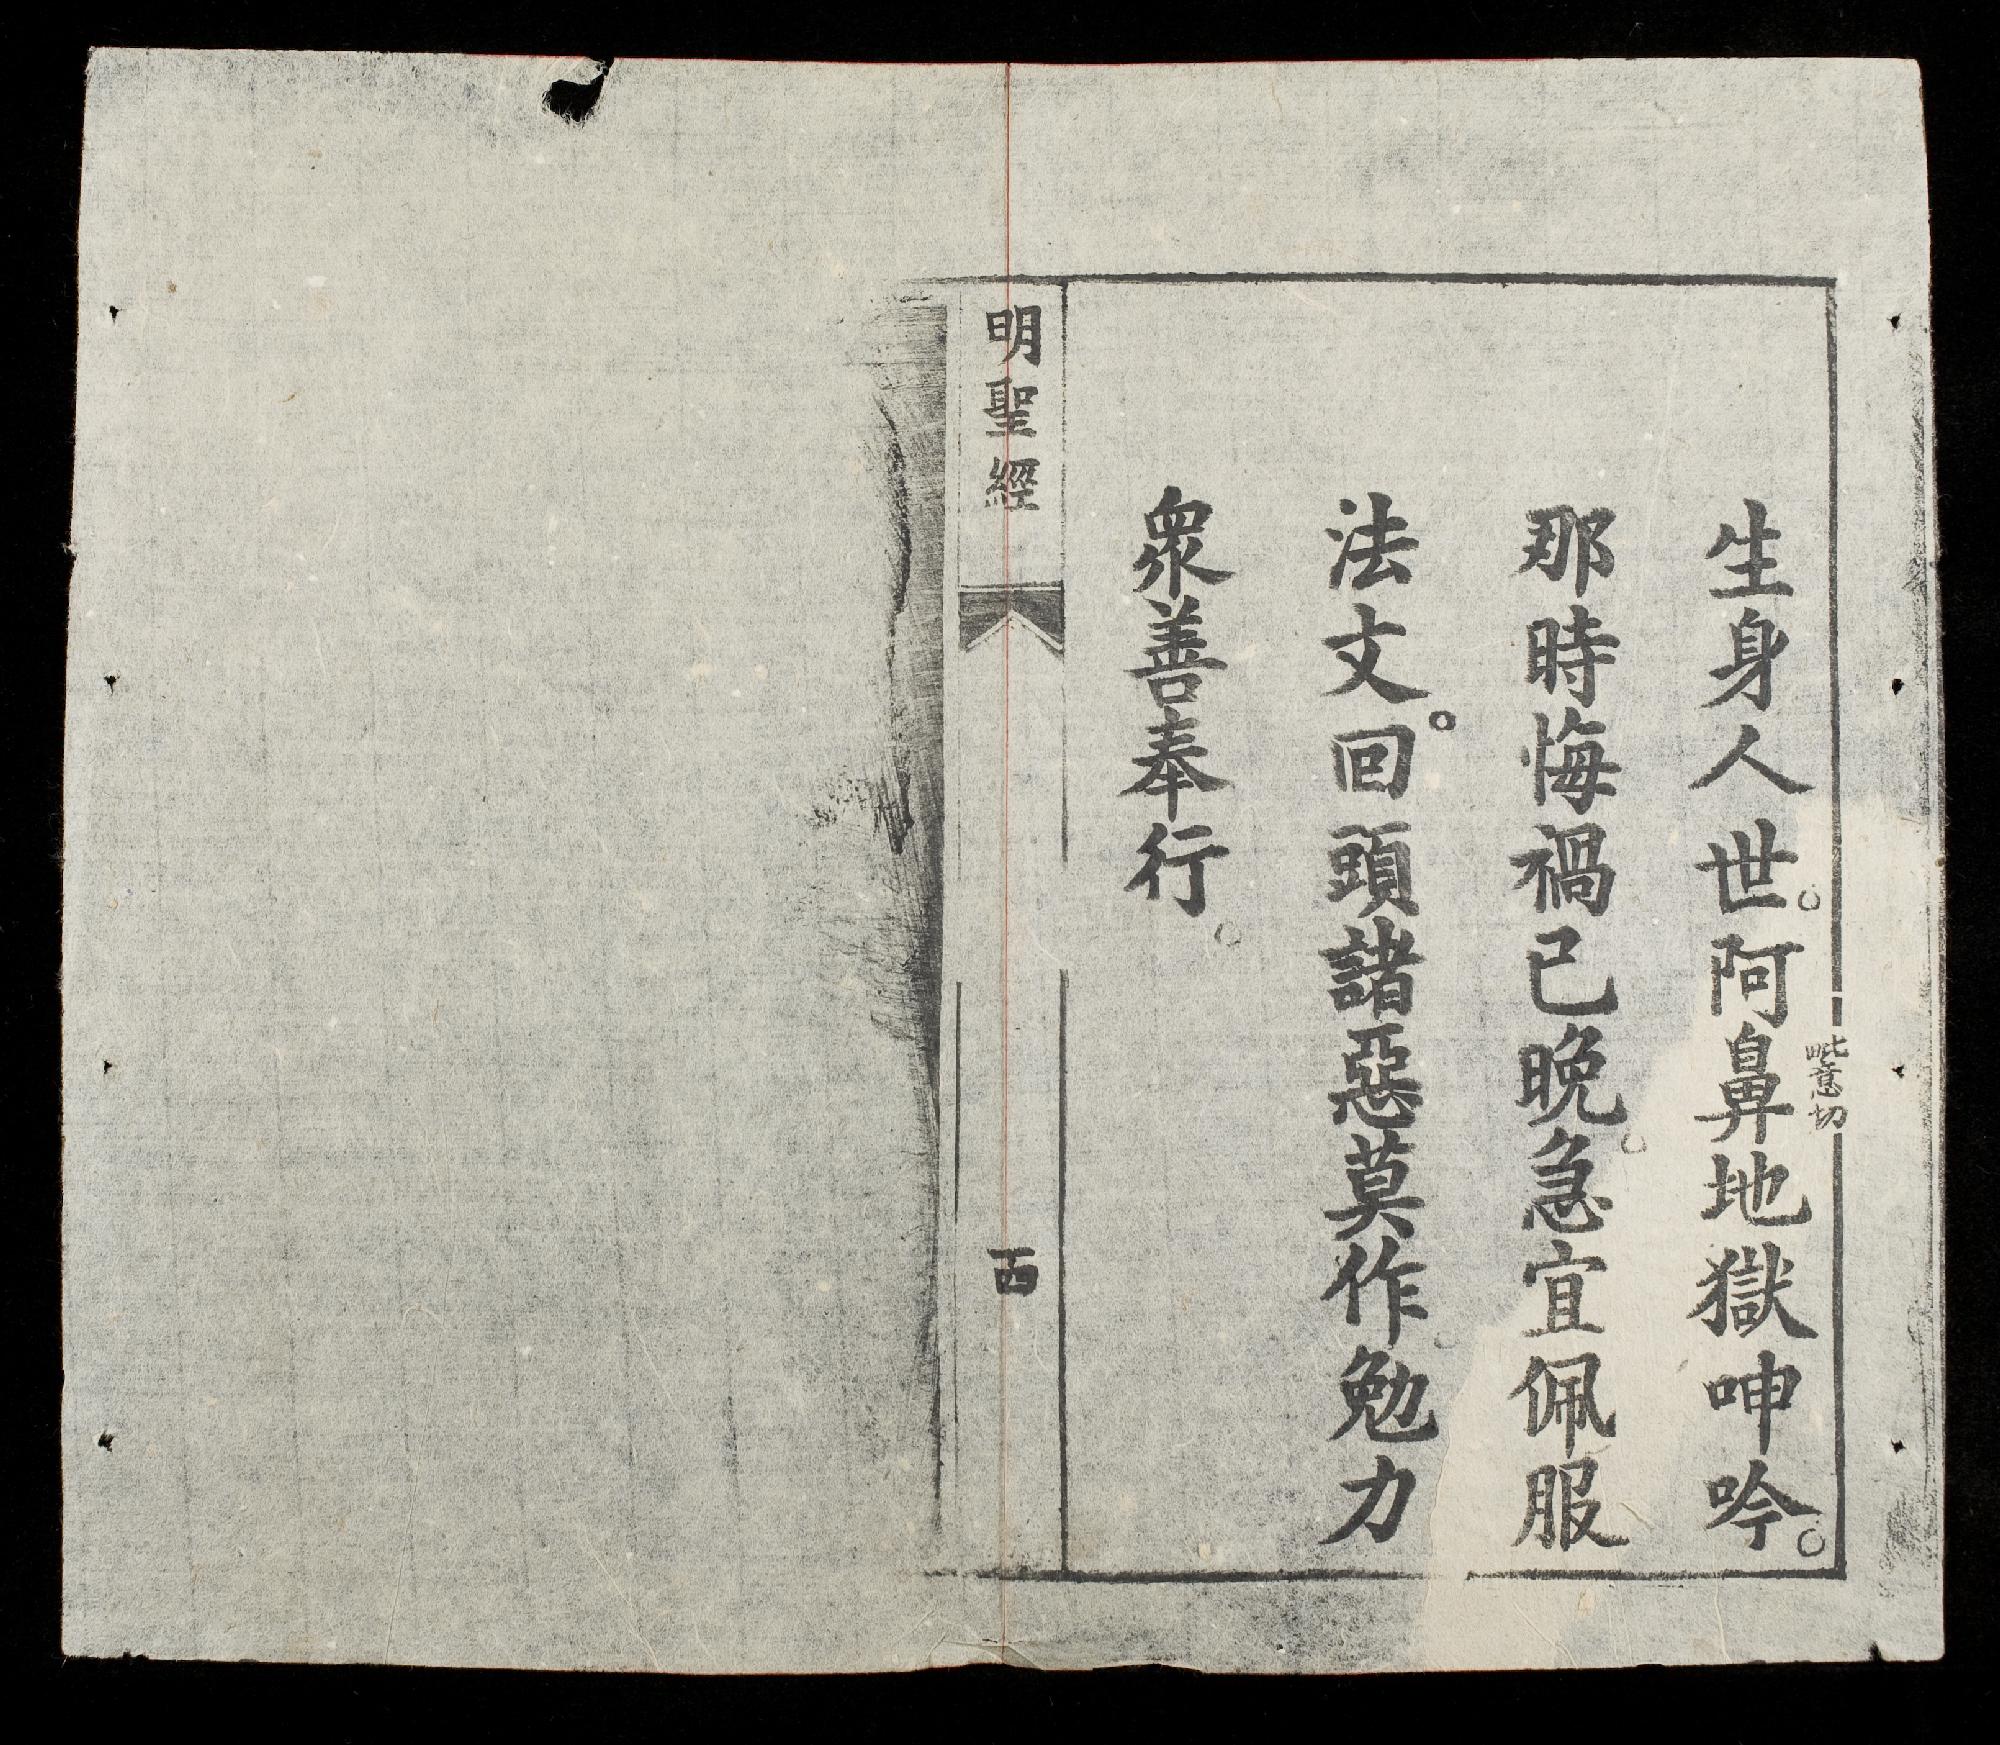 生身人世。阿鼻地獄呻吟。
毗意切
那時悔禍已晚。急宜佩服
法文。回頭諸惡莫作勉力
眾善奉行。
明聖經